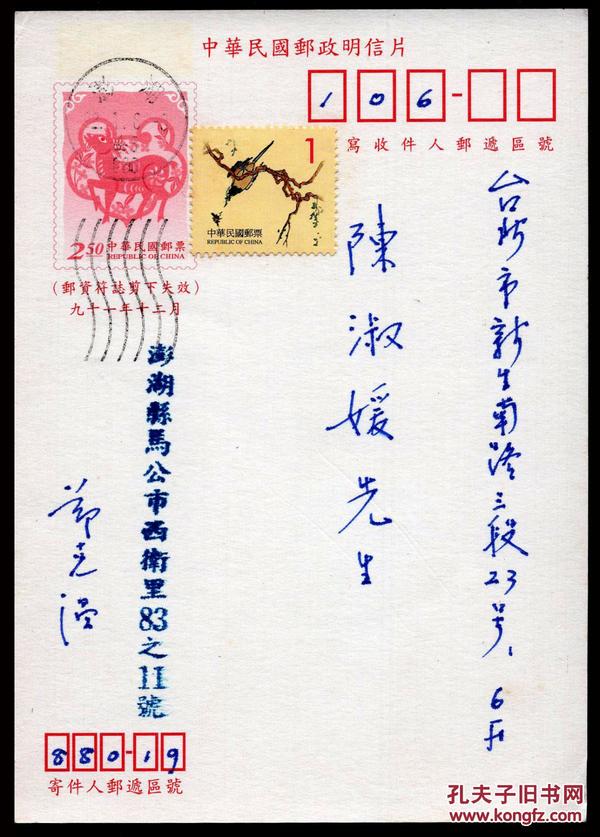 中華民國郵政明信片
106-
寫收件人郵遞區號
1
中華民國郵票
REPUBLIC OF CHINA
2.50 中華民國郵票
REPUBLIC OF CHINA
(郵資符誌剪下失效)
九十一年十二月
台北市新生南路三段23号、6F
陳淑媛先生
澎湖縣馬公市西衛里83之11號
鄭
880-19
寄件人郵遞區號
孔夫子旧书网
www.kongfz.com